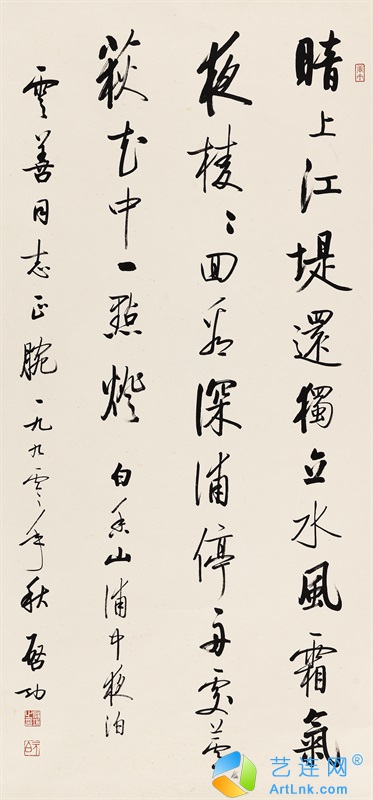 暗上江堤還獨立水風霜氣
夜棱〻回看深浦停舟處蘆
荻花中一點燈 白香山浦中夜泊
雲善同志正腕 一九九零年秋 啓功
艺连网®
ArtLnk.com